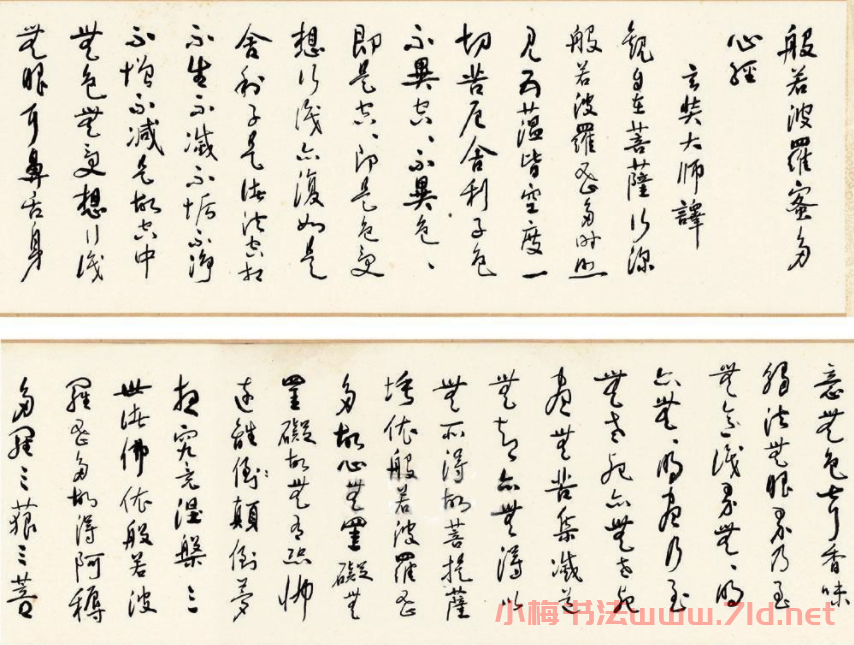 般若波羅蜜多
心經
玄奘大師譯
觀自在菩薩行深
般若波羅蜜多時照
見五蘊皆空度一
切苦厄舍利子色
不異空、不異色、
即是空、即是色受
想行識亦復如是
舍利子是諸法空相
不生不滅不垢不淨
不增不減是故空中
無色無受想行識
無眼耳鼻舌身
意無色聲香味
觸法無眼界乃至
無意識界無、明
亦無、明盡乃至
無老死亦無老死
盡無苦集滅道
無智亦無得以
無所得故菩提薩
埵依般若波羅蜜
多故心無罣礙無
罣礙故無有恐怖
遠離倒顛倒夢
想究竟涅槃三
世諸佛依般若波
羅蜜多故得阿耨
多羅三藐三菩
小梅书法www.7ld.net